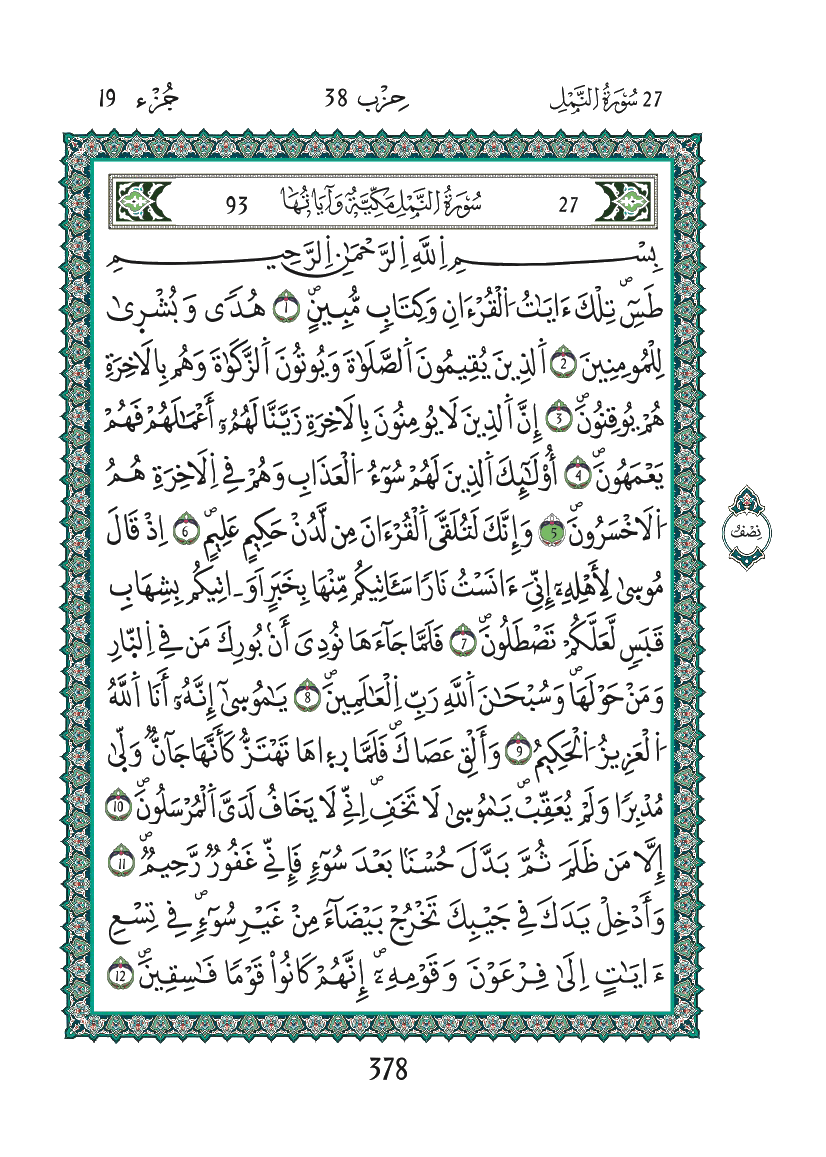 27 سُورَةُ النَّمْلِ
حِزْب 38
جُزْء 19
27 سُورَةُ النَّمْلِ مَكِّيَّةٌ وَآيَاتُهَا 93
بِسْمِ اِللَّهِ اِلرَّحْمَٰنِ اِلرَّحِيمِ
طَسِٓۖ تِلْكَ ءَايَٰتُ اُ۬لْقُرْءَانِ وَكِتَابٖ مُّبِينٍۖ 1 هُدىٗ وَبُشْر۪يٰ
لِلْمُومِنِينَ 2 اَ۬لذِينَ يُقِيمُونَ اَ۬لصَّلَوٰةَ وَيُوتُونَ اَ۬لزَّكَوٰةَ وَهُم بِالَاخِرَةِ
هُمْ يُوقِنُونَۖ 3 إِنَّ اَ۬لذِينَ لَا يُومِنُونَ بِالَاخِرَةِ زَيَّنَّا لَهُمُۥٓ أَعْمَٰلَهُمْ فَهُمْ
يَعْمَهُونَۖ 4 أُوْلَٰٓئِكَ اَ۬لذِينَ لَهُمْ سُوٓءُ اُ۬لْعَذَابِ وَهُمْ فِے اِ۬لَاخِرَةِ هُمُ
اُ۬لَاخْسَرُونَۖ 5 وَإِنَّكَ لَتُلَقَّى اَ۬لْقُرْءَانَ مِن لَّدُنْ حَكِيمٍ عَلِيمٍۖ 6 اِذْ قَالَ
مُوس۪يٰ لِأَهْلِهِۦٓ إِنِّيَ ءَانَسْتُ نَاراٗ سَـَٔاتِيكُم مِّنْهَا بِخَبَرٍ اَوَ اٰتِيكُم بِشِهَابِ
قَبَسٖ لَّعَلَّكُمْ تَصْطَلُونَۖ 7 فَلَمَّا جَآءَهَا نُودِيَ أَنۢ بُورِكَ مَن فِے اِ۬لنّ۪ارِ
وَمَنْ حَوْلَهَاۖ وَسُبْحَٰنَ اَ۬للَّهِ رَبِّ اِ۬لْعَٰلَمِينَۖ 8 يَٰمُوس۪يٰٓ إِنَّهُۥٓ أَنَا اَ۬للَّهُ
اُ۬لْعَزِيزُ اُ۬لْحَكِيمُ 9 وَأَلْقِ عَصَاكَۖ فَلَمَّا ر۪ء۪اهَا تَهْتَزُّ كَأَنَّهَا جَآنّٞ وَلّ۪يٰ
مُدْبِراٗ وَلَمْ يُعَقِّبْۖ يَٰمُوس۪يٰ لَا تَخَفِۖ اِنِّے لَا يَخَافُ لَدَيَّ اَ۬لْمُرْسَلُونَۖ 10
إِلَّا مَن ظَلَمَ ثُمَّ بَدَّلَ حُسْناَۢ بَعْدَ سُوٓءٖ فَإِنِّے غَفُورٞ رَّحِيمٞۖ 11
وَأَدْخِلْ يَدَكَ فِے جَيْبِكَ تَخْرُجْ بَيْضَآءَ مِنْ غَيْرِ سُوٓءٖۖ فِے تِسْعِ
ءَايَٰتٍ اِلَىٰ فِرْعَوْنَ وَقَوْمِهِۦٓۖ إِنَّهُمْ كَانُواْ قَوْماٗ فَٰسِقِينَۖ 12
نِصْفٌ
378